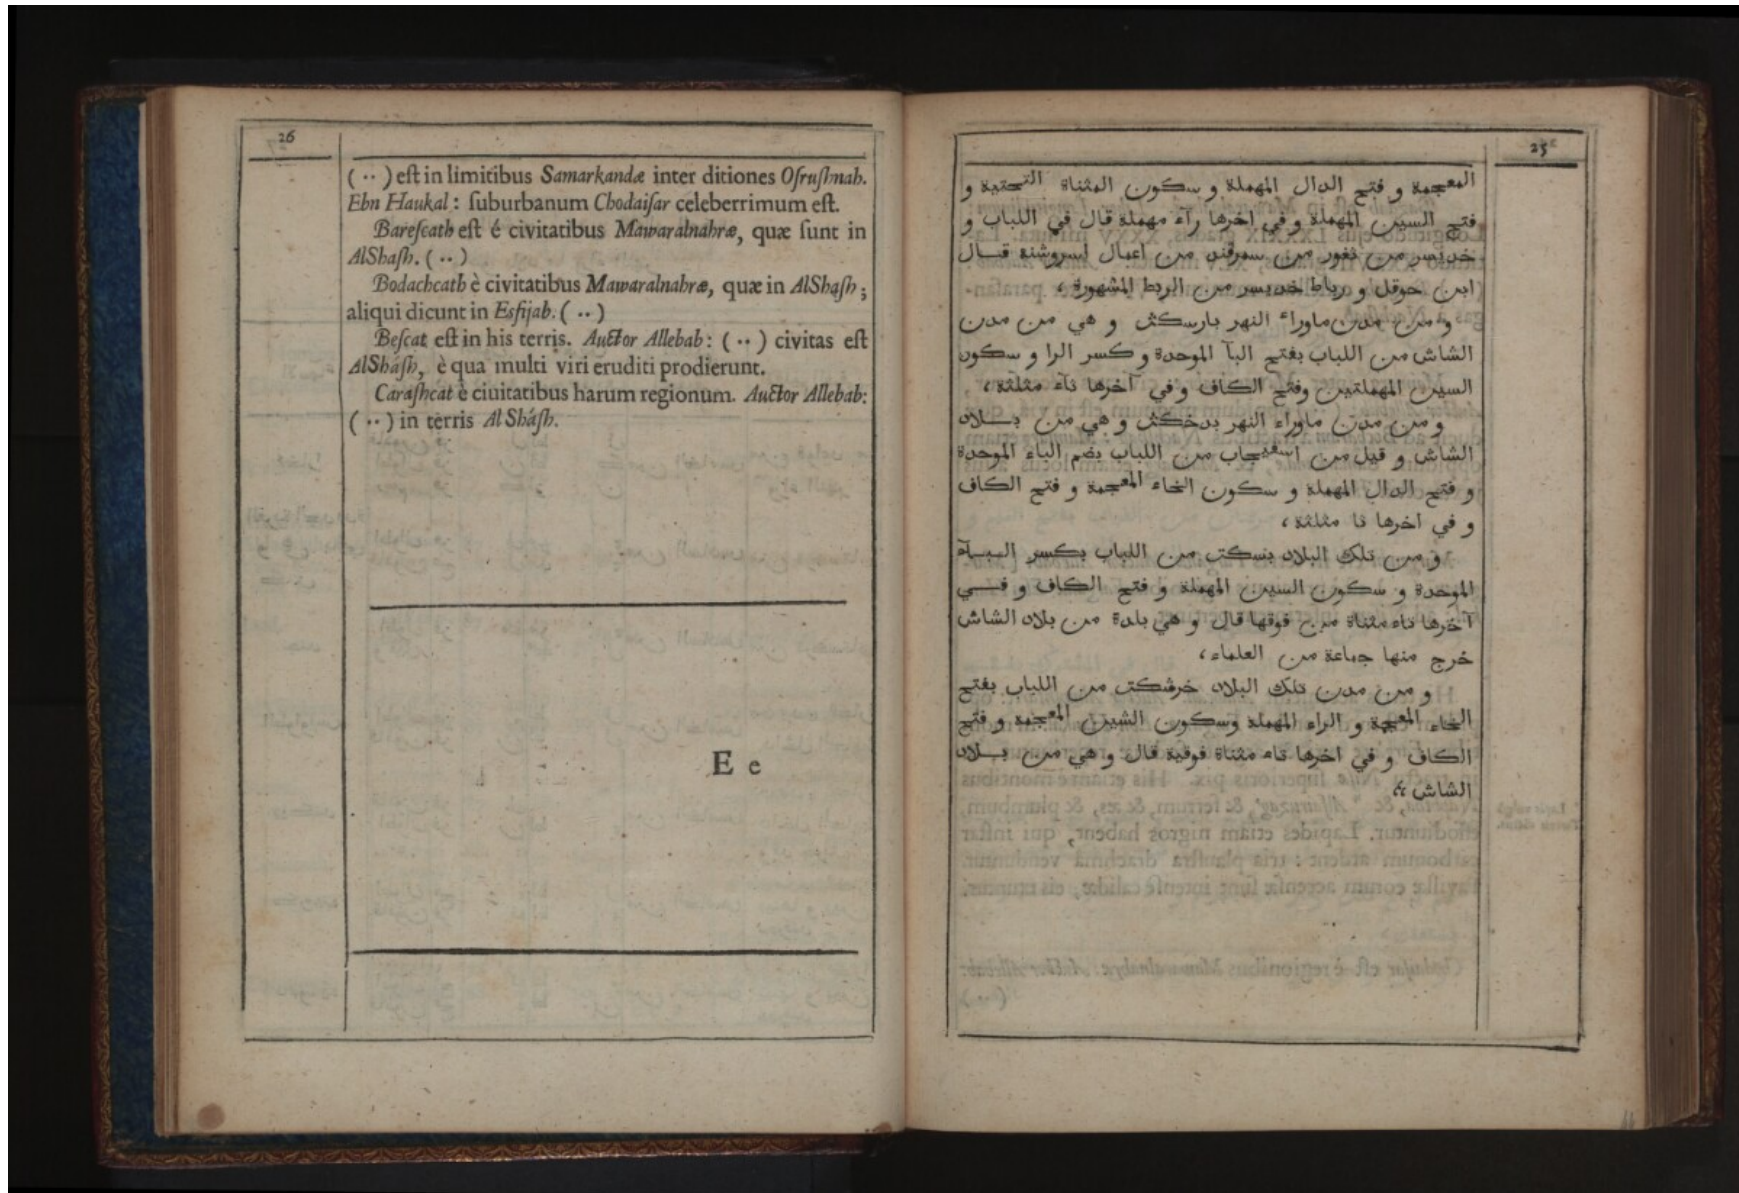 26
( ·· ) eſt in limitibus Samarkandæ inter ditiones Oſruſhnah.
Ebn Haukal : ſuburbanum Chodaiſar celeberrimum eſt.
Bareſcath eſt é civitatibus Mawaralnahræ, quæ ſunt in
AlShaſh. ( ·· )
Bodachcath è civitatibus Mawaralnahræ, quæ in AlShaſh ;
aliqui dicunt in Esfijab. ( ·· )
Beſcat eſt in his terris. Auctor Allebab : ( ·· ) civitas eſt
AlSháſh, è qua multi viri eruditi prodierunt.
Caraſhcat è ciuitatibus harum regionum. Auctor Allebab:
( ·· ) in terris Al Sháſh.
E e
25
المعجمة و فتح الدال المهملة و سكون المثناة التحتية و
فتح السين المهملة و في اخرها رآء مهملة قال في اللباب و
خديسر من ثغور من سمرقند من اعمال اسروشنة قال
ابن حوقل و رباط خديسر من الربط المشهورة ،
و من مدن ماوراء النهر بارسكث و هي من مدن
الشاش من اللباب بفتح البآ الموحدة و كسر الرا و سكون
السين المهملتين وفتح الكاف و في آخرها ثاء مثلثة ،
و من مدن ماوراء النهر بدخكث و هي من بلاد
الشاش و قيل من اسفيجاب من اللباب بضم الباء الموحدة
و فتح الدال المهملة و سكون الخاء المعجمة و فتح الكاف
و في اخرها ثا مثلثة ،
و من تلك البلاد بسكت من اللباب بكسر البآء
الموحدة و سكون السين المهملة و فتح الكاف و في
آخرها تاء مثناة من فوقها قال و هي بلدة من بلاد الشاش
خرج منها جماعة من العلماء ،
و من مدن تلك البلاد خرشكت من اللباب بفتح
الخاء المعجمة و الراء المهملة وسكون الشين المعجمة و فتح
الكاف و في اخرها تاء مثناة فوقية قال و هي من بلاد
الشاش